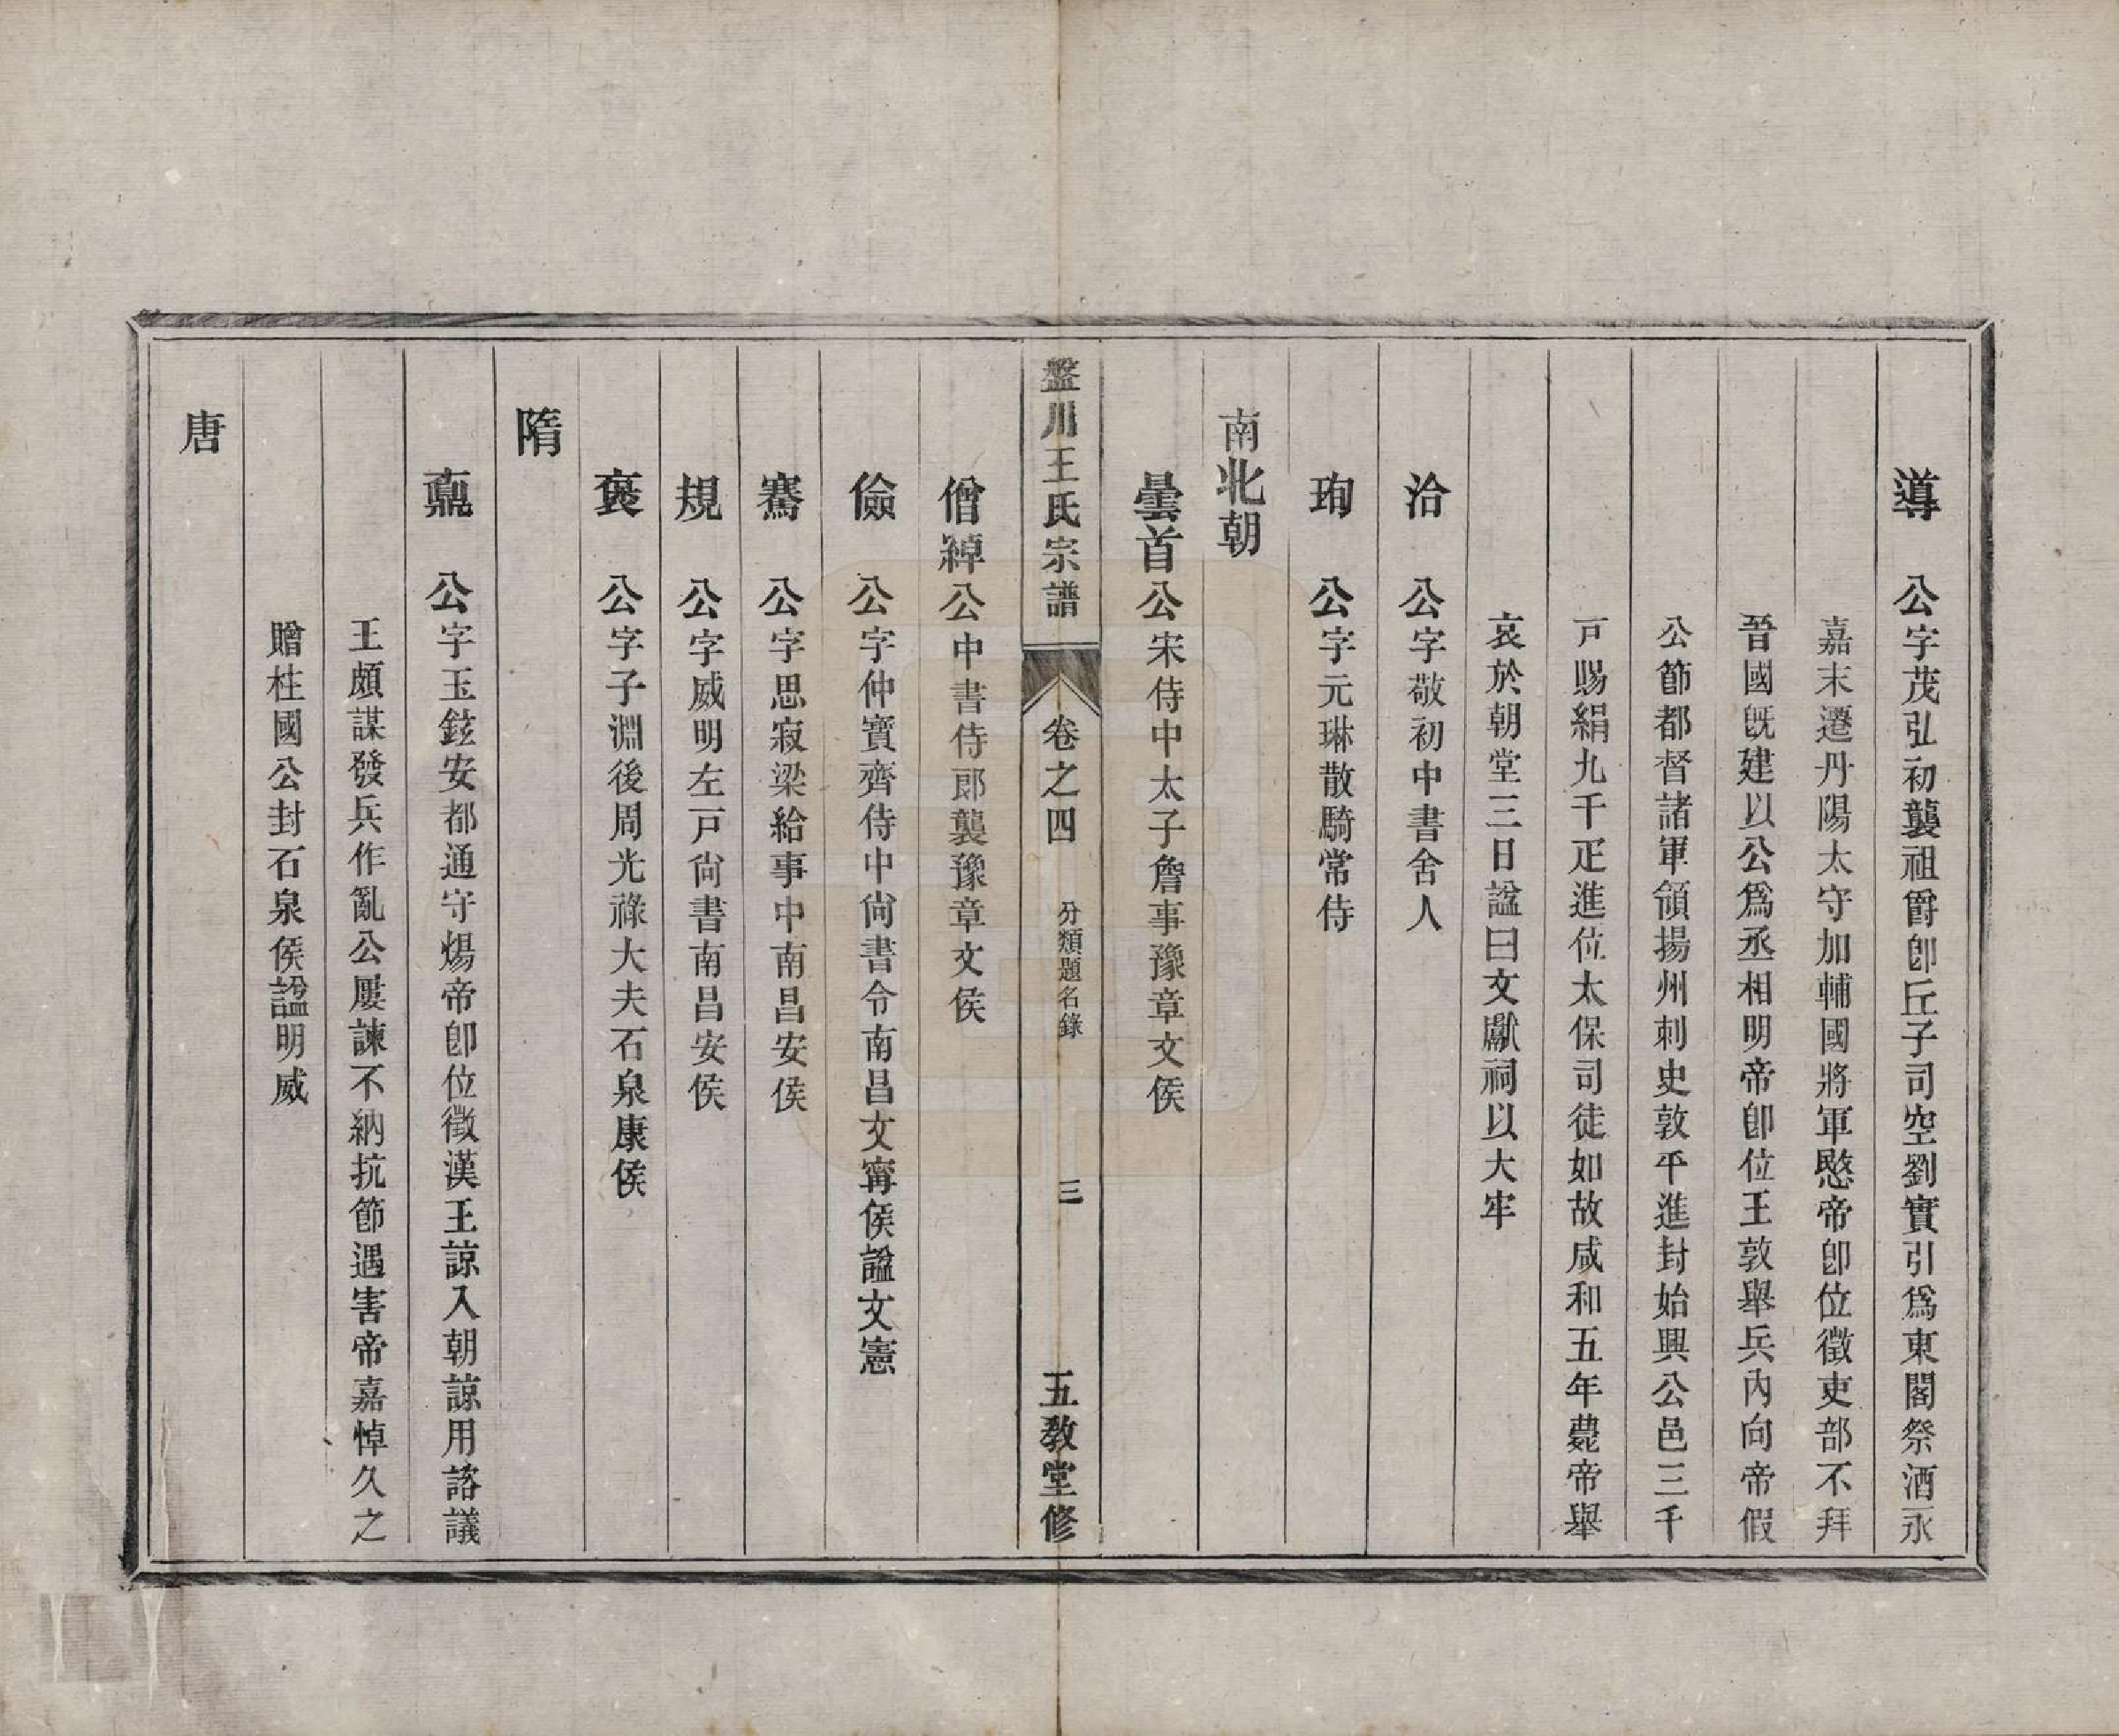 導　公字茂弘初襲祖爵卽丘子司空劉實引爲東閣祭酒永
嘉末遷丹陽太守加輔國將軍愍帝卽位徵吏部不拜
晉國旣建以公爲丞相明帝卽位王敦舉兵內向帝假
公節都督諸軍領揚州刺史敦平進封始興公邑三千
戸賜絹九千疋進位太保司徒如故咸和五年薨帝舉
哀於朝堂三日諡曰文獻祠以大牢
洽　公字敬初中書舍人
珣　公字元琳散騎常侍
南北朝
曇首公宋侍中太子詹事豫章文侯
盤川王氏宗譜　卷之四　分類題名錄　三　五教堂修
僧綽公中書侍郎襲豫章文侯
儉　公字仲寶齊侍中尙書令南昌文寗侯諡文憲
騫　公字思寂梁給事中南昌安侯
規　公字威明左戸尙書南昌安侯
褒　公字子淵後周光祿大夫石泉康侯
隋
鼒　公字玉鉉安都通守煬帝卽位徵漢王諒入朝諒用諮議
王頗謀發兵作亂公屢諫不納抗節遇害帝嘉悼久之
贈柱國公封石泉侯諡明威
唐